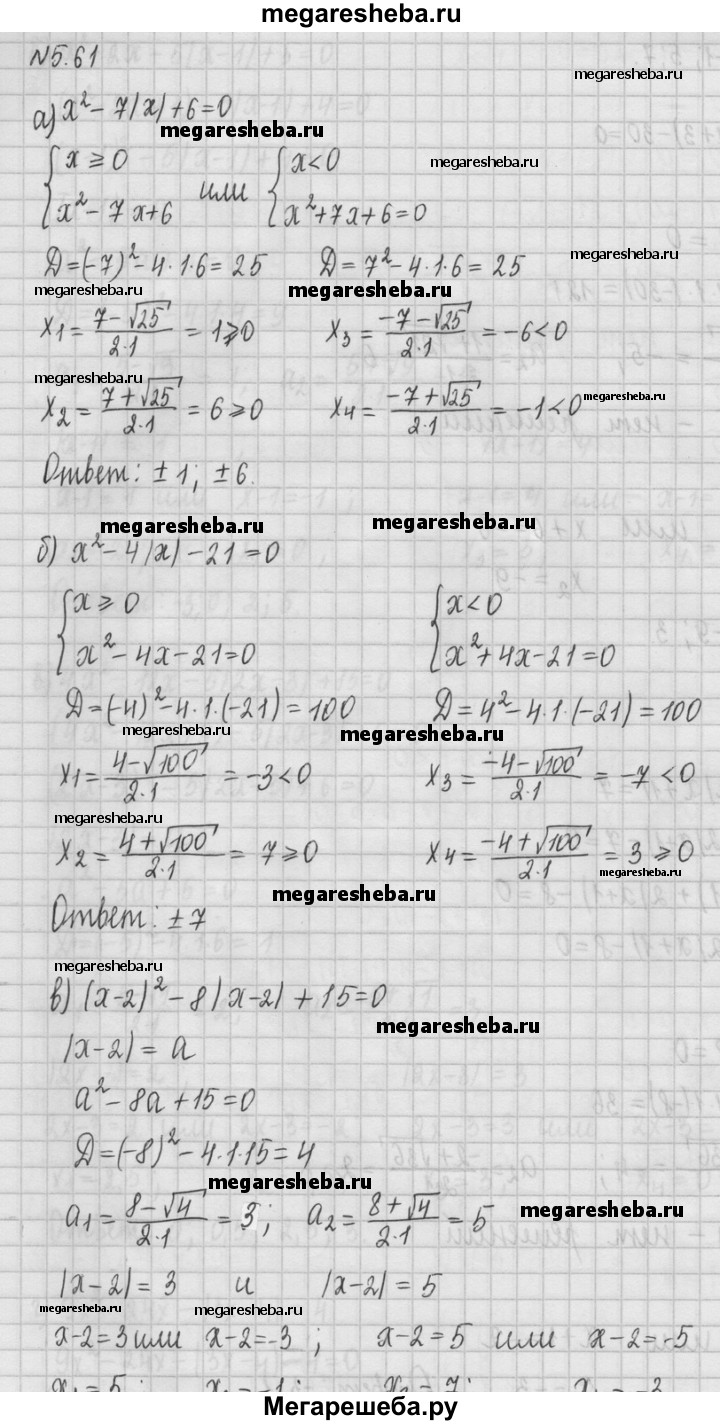 megaresheba.ru
N5.61
megaresheba.ru
а) x² - 7|x| + 6 = 0
megaresheba.ru
{ x ⩾ 0 или { x < 0
megaresheba.ru
x² - 7x + 6 x² + 7x + 6 = 0
D = (-7)² - 4·1·6 = 25 D = 7² - 4·1·6 = 25
megaresheba.ru
megaresheba.ru megaresheba.ru
x1 = (7 - √25)/(2·1) = 1 ⩾ 0 x3 = (-7 - √25)/(2·1) = -6 < 0
megaresheba.ru
x2 = (7 + √25)/(2·1) = 6 ⩾ 0 x4 = (-7 + √25)/(2·1) = -1 < 0
megaresheba.ru
Ответ: ± 1; ± 6.
megaresheba.ru megaresheba.ru
б) x² - 4|x| - 21 = 0
{ x ⩾ 0 { x < 0
x² - 4x - 21 = 0 x² + 4x - 21 = 0
D = (-4)² - 4·1·(-21) = 100 D = 4² - 4·1·(-21) = 100
megaresheba.ru megaresheba.ru
x1 = (4 - √100)/(2·1) = -3 < 0 x3 = (-4 - √100)/(2·1) = -7 < 0
megaresheba.ru
x2 = (4 + √100)/(2·1) = 7 ⩾ 0 x4 = (-4 + √100)/(2·1) = 3 ⩾ 0
megaresheba.ru
megaresheba.ru
Ответ: ± 7
megaresheba.ru
в) (x-2)² - 8|x-2| + 15 = 0
megaresheba.ru
|x-2| = a
a² - 8a + 15 = 0
D = (-8)² - 4·1·15 = 4
megaresheba.ru
a1 = (8 - √4)/(2·1) = 3; a2 = (8 + √4)/(2·1) = 5
megaresheba.ru
|x-2| = 3 и |x-2| = 5
megaresheba.ru megaresheba.ru
x-2 = 3 или x-2 = -3 ; x-2 = 5 или x-2 = -5
Мегарешеба.ру